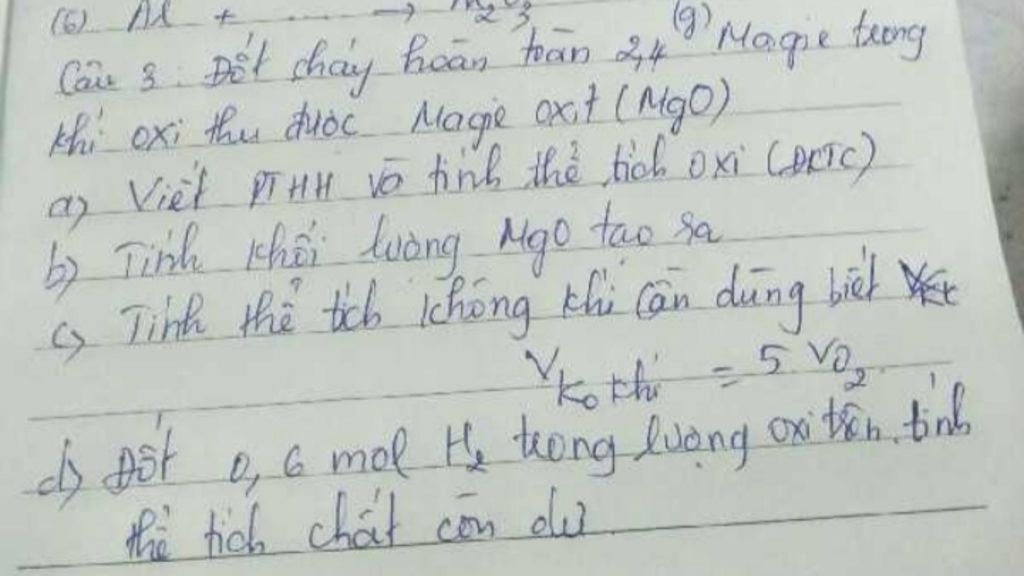 (6) Al + ..... → Al2O3
Câu 3: Đốt cháy hoàn toàn 2,4 (g) Magie trong
khí oxi thu được Magie oxit (MgO)
a) Viết PTHH và tính thể tích oxi (ĐKTC)
b) Tính khối lượng MgO tạo ra
c) Tính thể tích không khí cần dùng biết
VKo khí = 5. VO2
d) Đốt 0,6 mol H2 trong lượng oxi trên. tính
thể tích chất còn dư